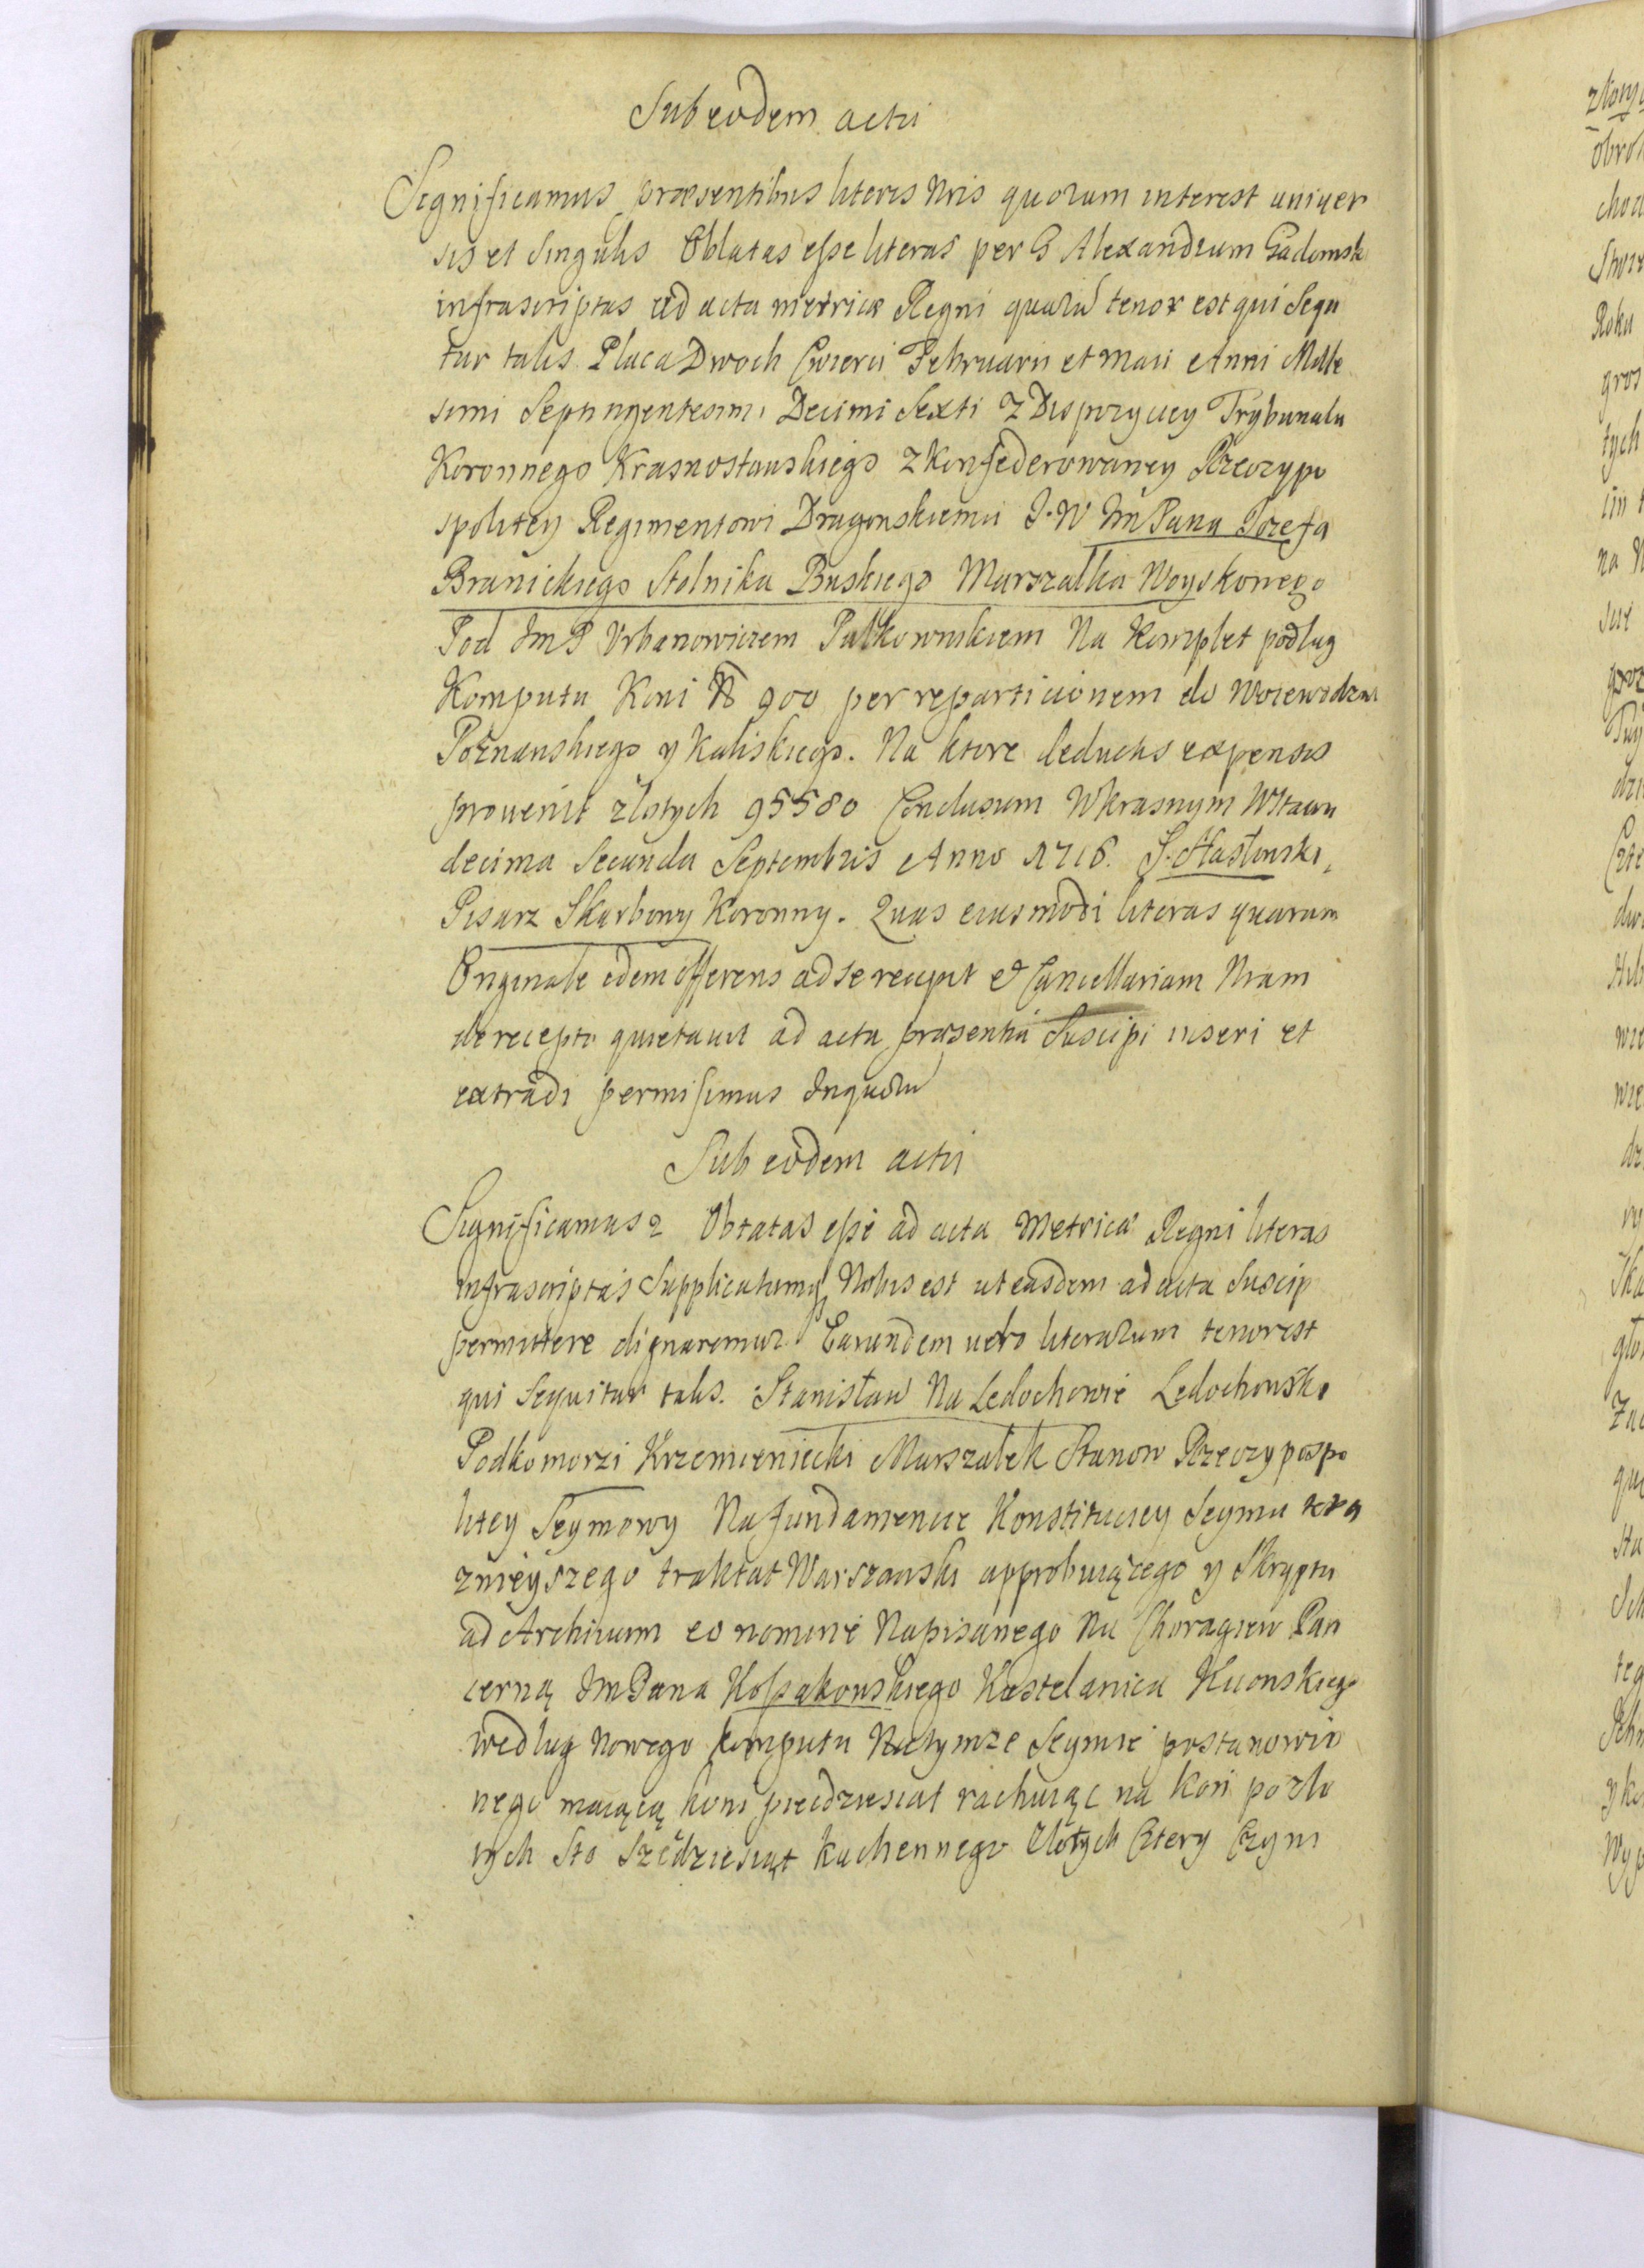 Sub eodem actu
Significamus præsentibus literis Nris quorum interest univer
sis et Singulis Oblatas eſse literas per G Alexandrum Gadomsk
infrascriptas ad acta metricæ Regni quarũ tenor est qui Sequ
tur talis Placa Dwoch Cwierci Februarii et Maii Anni Mille
simi Septingentesimi Decimi Sexti z Dispozycyey Trybunalu
Koronnego Krasnostawskiego zkonfederowaney Rzeczypo
spolitey Regimentowi Dragonskiemu J.W ImPana Jozefa
Branickiego Stolnika Buskiego Marszalka Woyskowego
Pod Im P Urbanowiczem Pulkownikiem Na Komplet podlug
Komputu Koni No 900 per reparticionem do Woiewodztw
Poznanskiego y Kaliskiego. Na ktore deductis expensis
prouenit zlotych 95580 Conclusum W krasnym Wstawu
decima Secunda Septembris Anno 1716. S. Hasłowski,
Pisarz Skarbowy Koronny. Quas eiusmodi literas quarum
Originale idem offerens ad se recepit et Cancellariam Nram
de recepto quietauit ad acta præsentia Suscipi inseri et
extradi permiſimus Inquorũ
Sub eodem actu
Significamus 2 Oblatas eſse ad acta Metricæ Regni literas
infrascriptas Supplicatumq Nobis est ut easdem ad acta Suscip
permittere dignaremur Earundem uero literarum tenor est
qui Sequitur talis. Stanisław Na Ledochowie Ledochowski
Podkomorzi Krzemieniecki Marszałek Stanow Rzeczypospo
litey Seymowy Na fundamencie Konstitucyey Seymu tera
znieyszego traktat Warszawski approbuiącego y Skryptu
ad Archiuum eo nomine Napisanego Na Choragiew Pan
cerną Im Pana Koſsakowskiego Kastelanica Kiionskiego
według Nowego komputu Na tymze Seymie postanowio
nego maiącą koni piecdziesiat rachuiąc na koń po zlo
tych Sto Szećdziesiąt kuchennego Zlotych Cztery Czyni